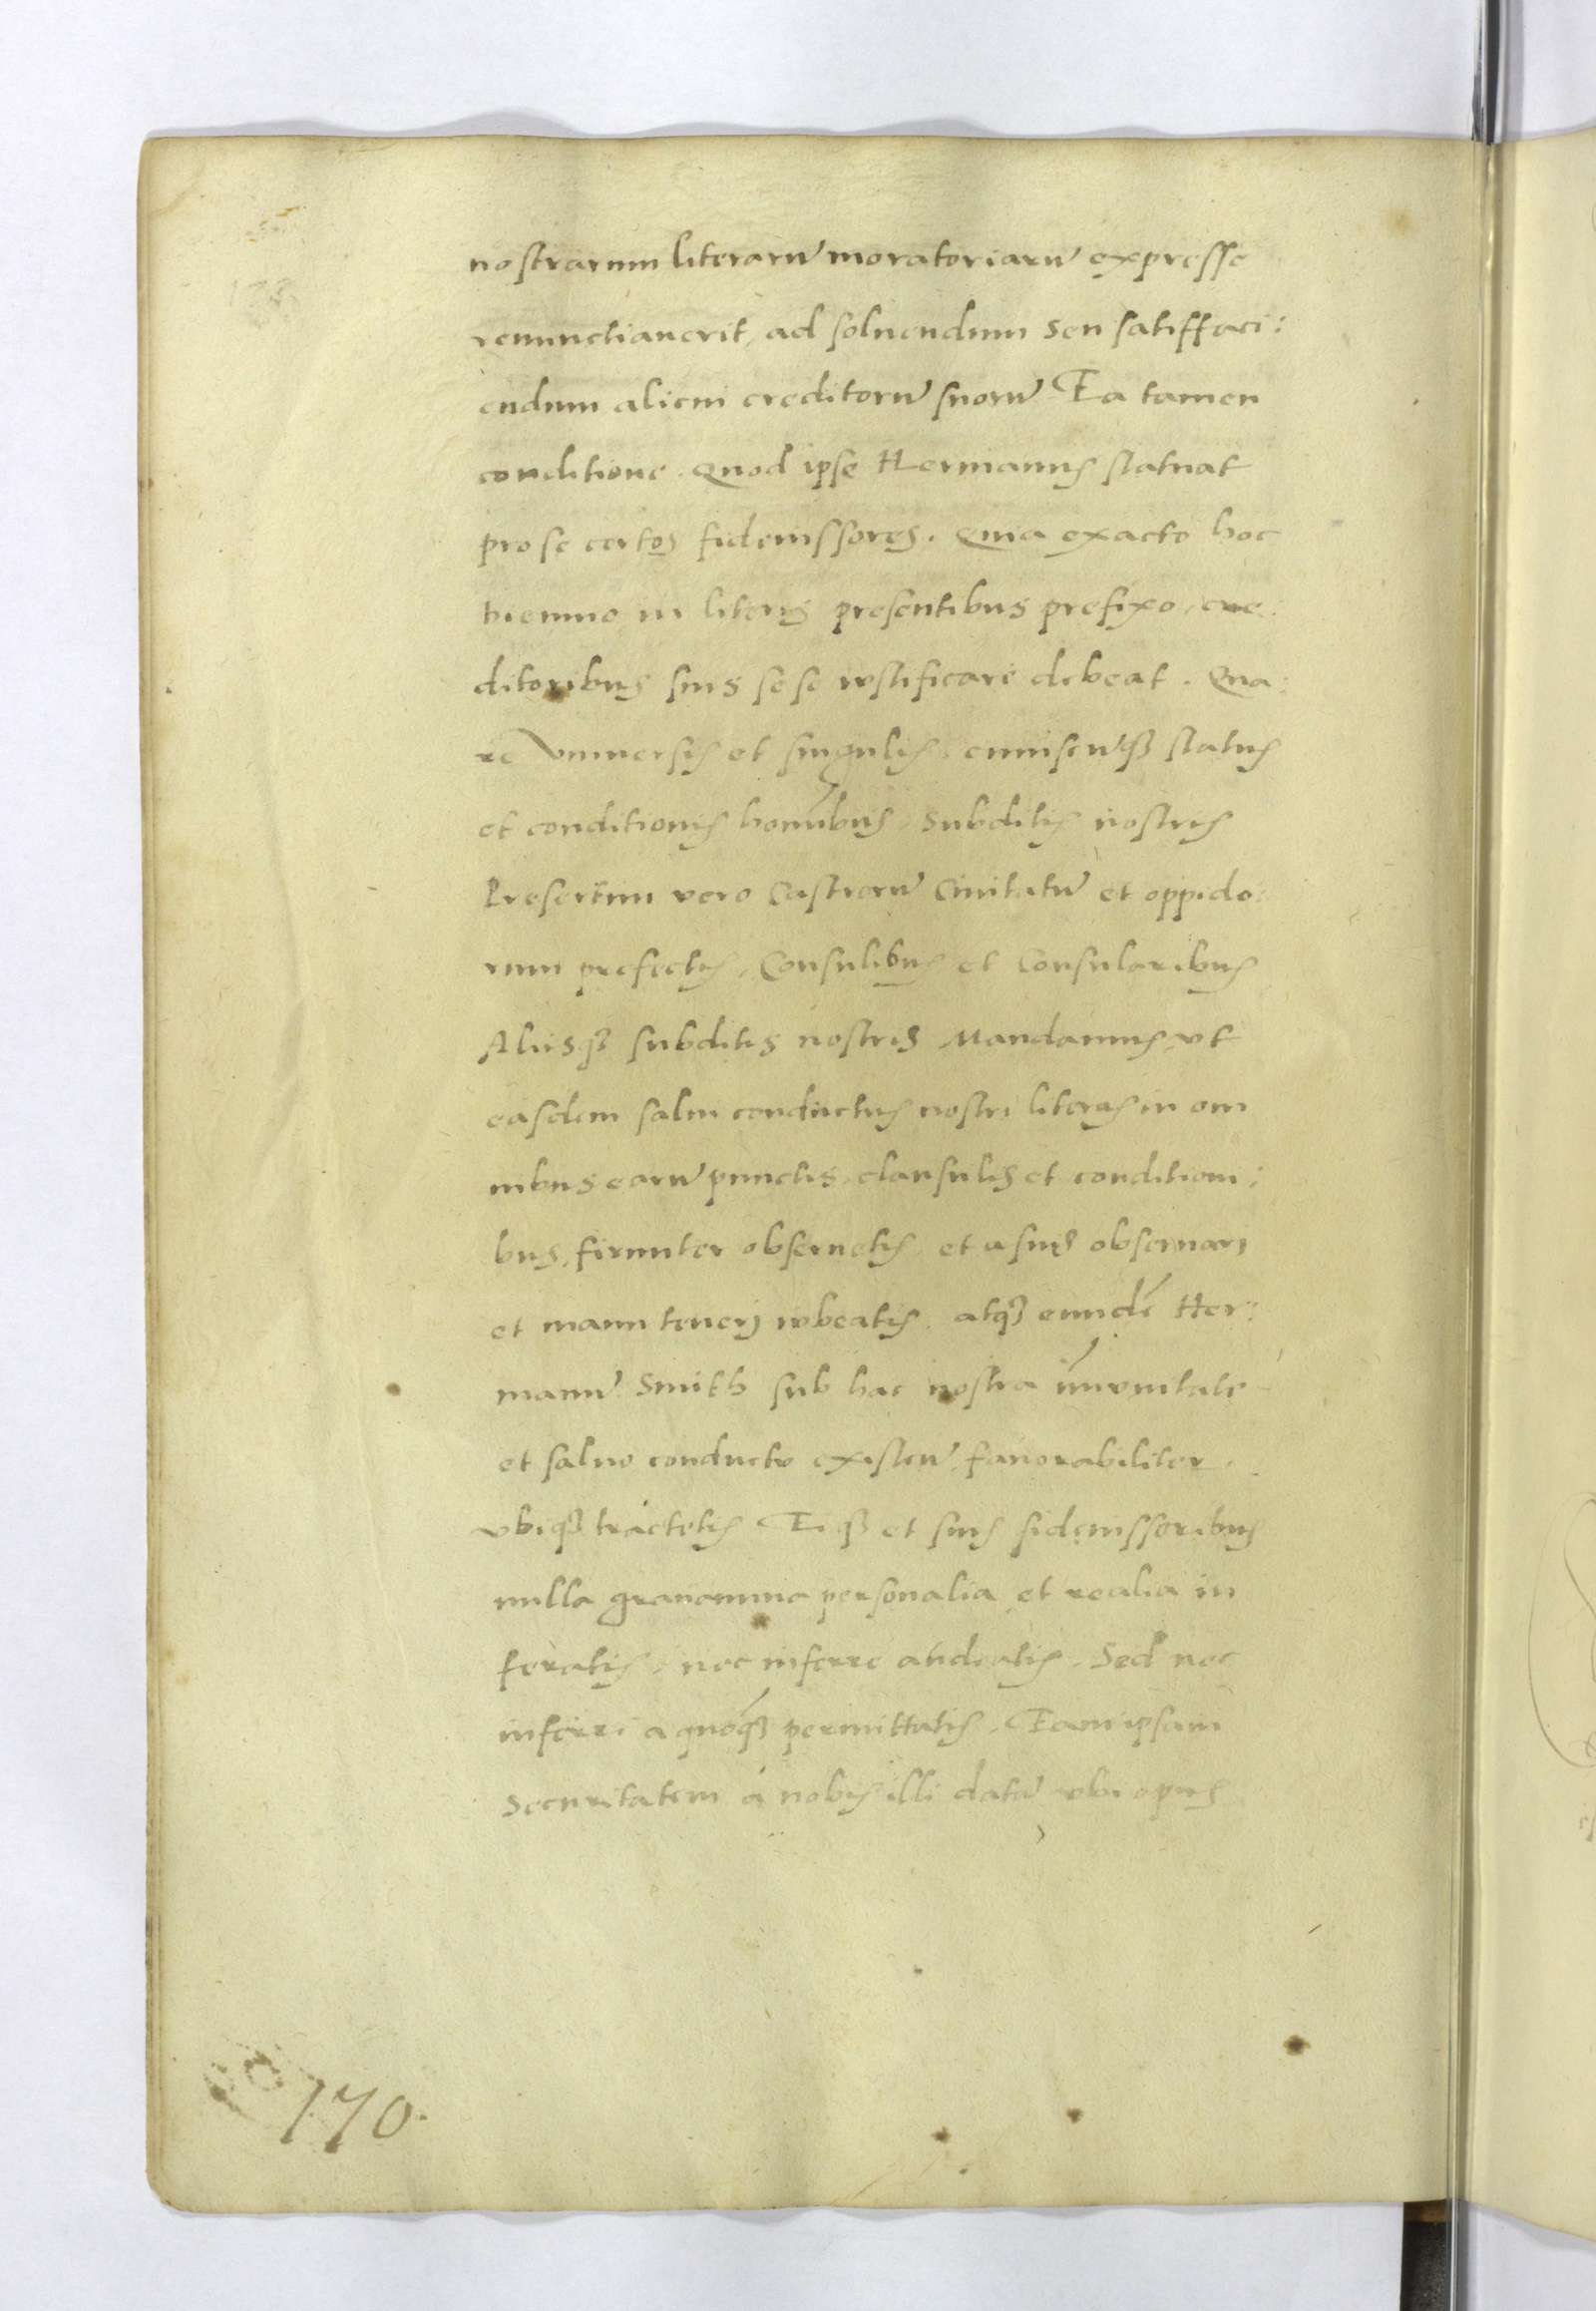 nostrarum literarũ moratoriarũ expresse
renunctiauerit, ad soluendum seu satisffaci:
endum alicui creditorũ suorũ Ea tamen
conditione. Quod ipse Hermannus statuat
pro se certos fideiussores. Quia exacto hoc
biennio in literis presentibus prefixo, cre:
ditoribus suis sese iustificare debeat. Qua:
re vniuersis et singulis, cuiuscũqȝ status
et conditionis homĩbus, Subditis nostris
Presertim vero Castrorũ Ciuitatũ et oppido:
rum prefectis, Consulibus et Consularibus
Aliisqȝ subditis nostris Mandamus, vt
easdem salui conductus nostri literas in om
nibus earũ punctis, clausulis et condition:
bus, firmiter obseruetis, et a suis obseruari
et manu teneri iubeatis. atqȝ eundẽ Her:
mannũ Smith sub hac nostra ĩmunitate
et saluo conducto existeñ, fauorabiliter
vbiqȝ tractetis Eiqȝ et suis fideiussoribus
nulla grauamina personalia et realia in
feratis, nec inferre audeatis. Sed nec
inferri a quoqȝ permittatis. Eam ipsam
securitatem a nobis illi datã vbi opus
170.